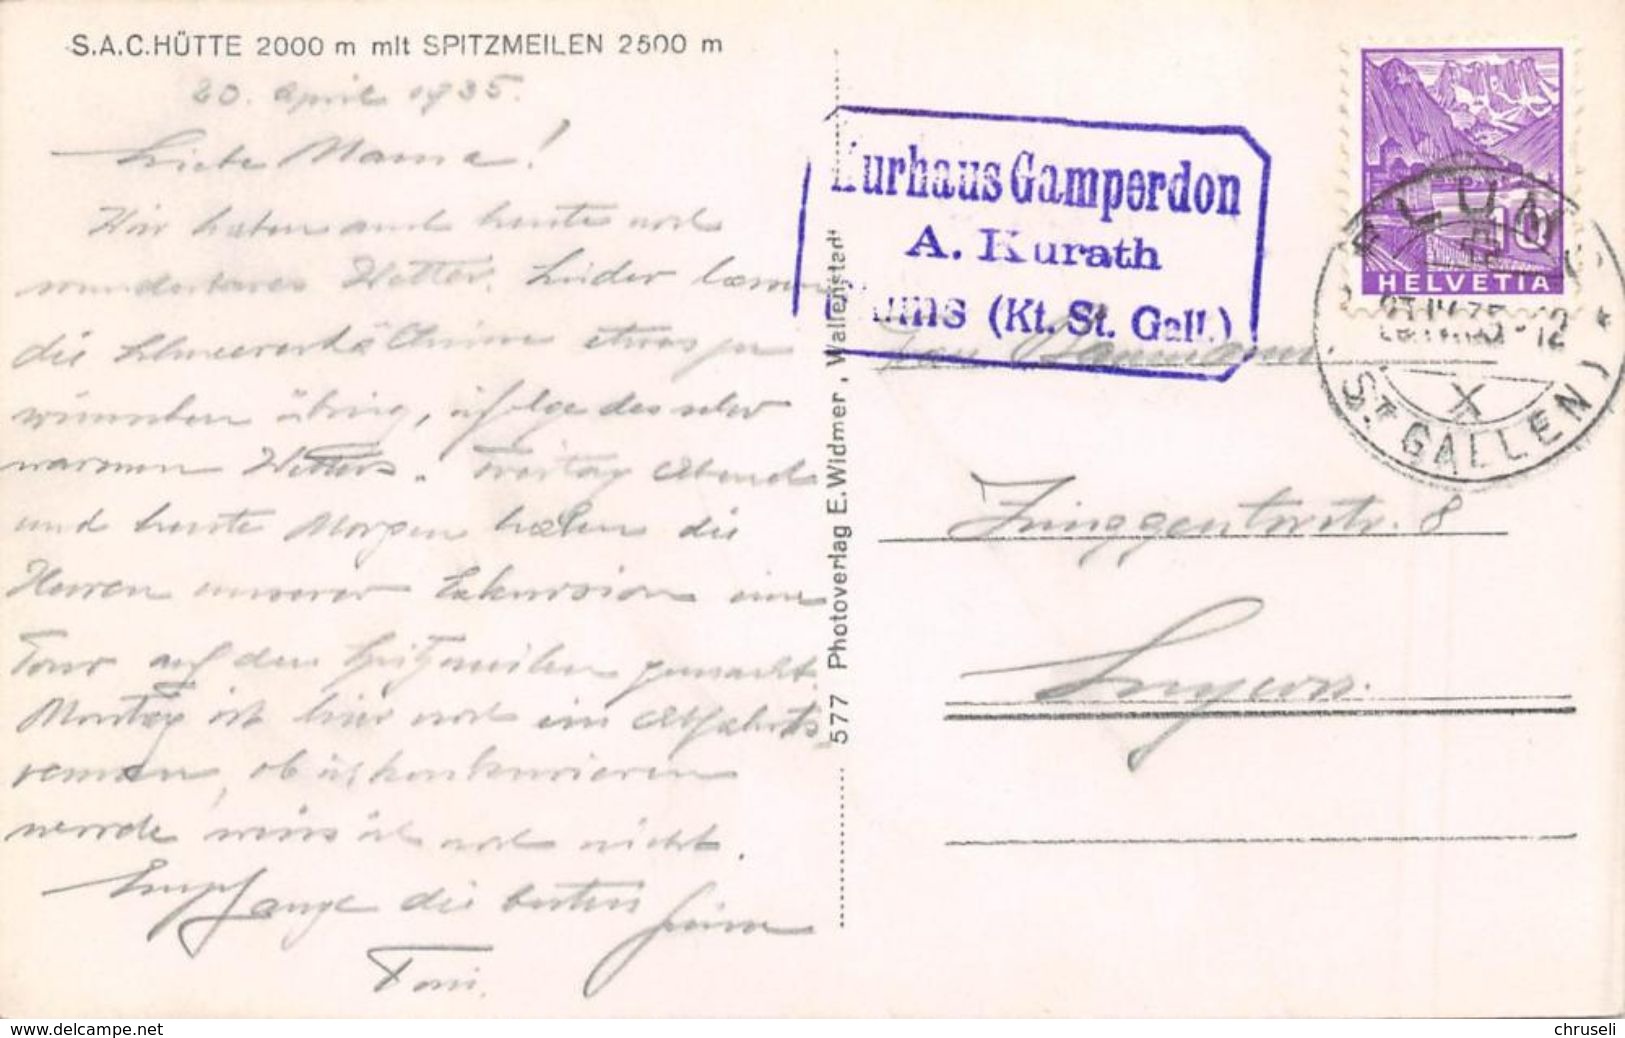 S.A.C.HÜTTE 2000 m mit SPITZMEILEN 2500 m
20. April 1935.
Liebe Mama!
Wir haben auch heute noch
wunderbares Wetter. Leider lassen
die Schneeverhältnisse etwas zu
wünschen übrig, infolge des sehr
warmen Wetters. Freitag Abend
und heute Morgen haben die
Herren unserer Exkursion eine
Tour auf den Spitzmeilen gemacht.
Montag ist hier noch ein Abfahrts-
rennen, ob ich konkurrieren
werde weiss ich noch nicht.
Empfange die besten
Toni.
577 Photoverlag E.Widmer, Wallenstadt
Kurhaus Gamperdon
A. Kurath
Flums (Kt. St. Gall.)
10
HELVETIA
FLUMS
ST. GALLEN
X
Frau Baumann.
Zinggentorstr. 8
Luzern.
www.delcampe.net
chruseli